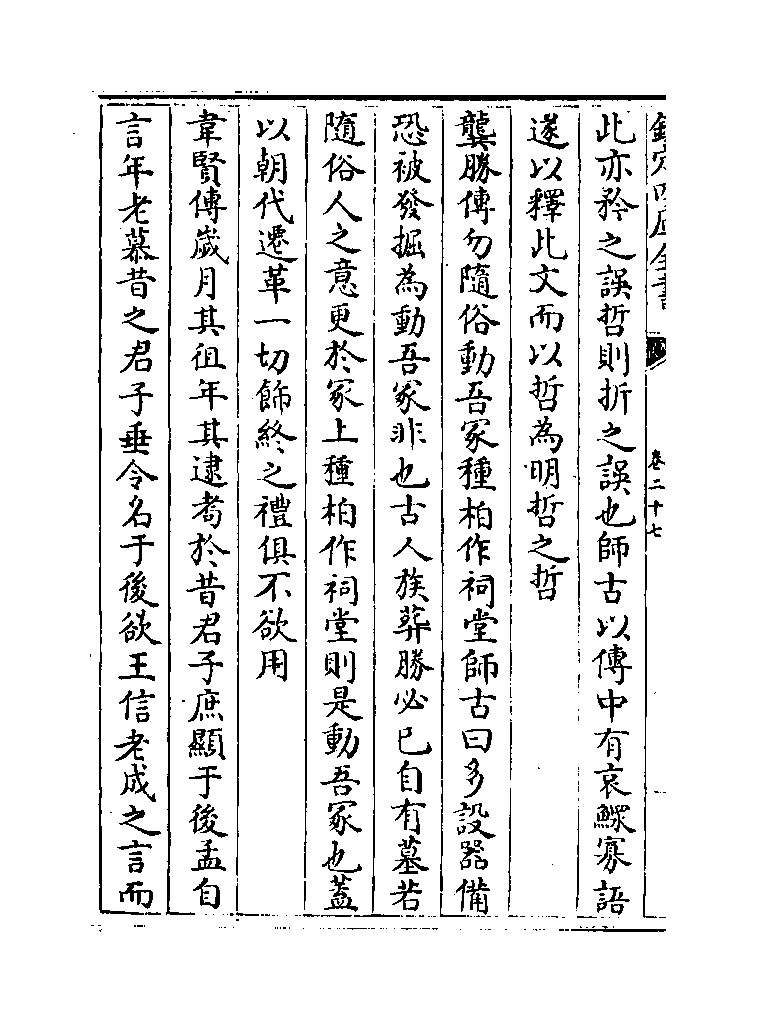 欽定四庫全書
卷二十七
此亦矜之誤哲則折之誤也師古以傳中有哀鰥寡語
遂以釋此文而以哲為明哲之哲
龔勝傳勿隨俗動吾冢種柏作祠堂師古曰多設器備
恐被發掘為動吾冢非也古人族葬勝必已自有墓若
隨俗人之意更於冢上種柏作祠堂則是動吾冢也蓋
以朝代遷革一切飾終之禮俱不欲用
韋賢傳歲月其徂年其逮耇於昔君子庶顯于後孟自
言年老慕昔之君子垂令名于後欲王信老成之言而